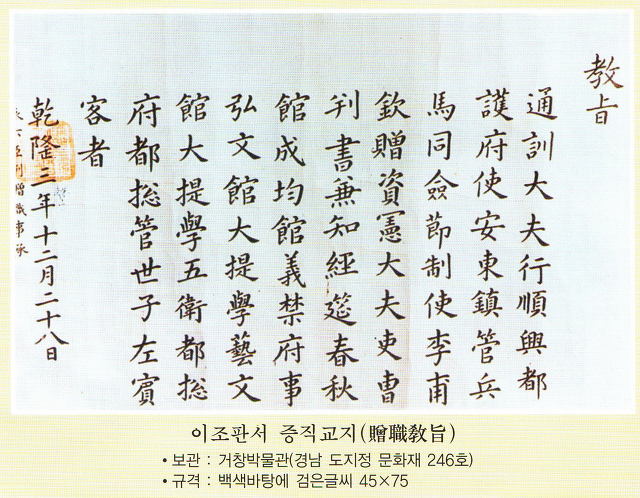 教旨
通訓大夫行順興都
護府使安東鎮管兵
馬同僉節制使李甫
欽贈資憲大夫吏曹
判書兼知經筵春秋
館成均館義禁府事
弘文館大提學藝文
館大提學五衛都捴
府都捴管世子左賓
客者
乾隆三年十二月二十八日
贈職事承
이조판서 증직교지(贈職敎旨)
• 보관 : 거창박물관(경남 도지정 문화재 246호)
• 규격 : 백색바탕에 검은글씨 45×75